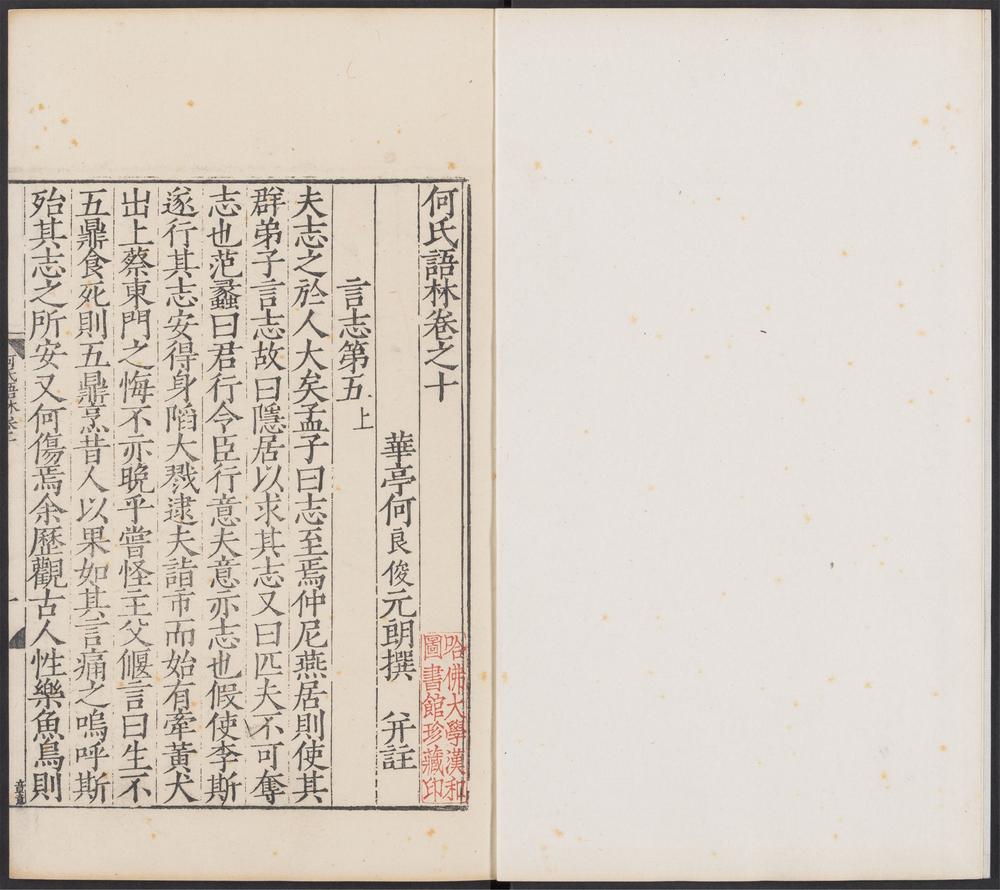 何氏語林卷之十
華亭何良俊元朗撰 并註
言志第五上
夫志之於人大矣孟子曰志至焉仲尼燕居則使其
群弟子言志故曰隱居以求其志又曰匹夫不可奪
志也范蠡曰君行令臣行意夫意亦志也假使李斯
遂行其志安得身陷大戮逮夫詣市而始有牽黃犬
出上蔡東門之悔不亦晚乎嘗怪主父偃言曰生不
五鼎食死則五鼎烹昔人以果如其言痛之嗚呼斯
殆其志之所安又何傷焉余歷觀古人性樂魚鳥則
哈佛大學漢和
圖書館珍藏印
何氏語林卷十